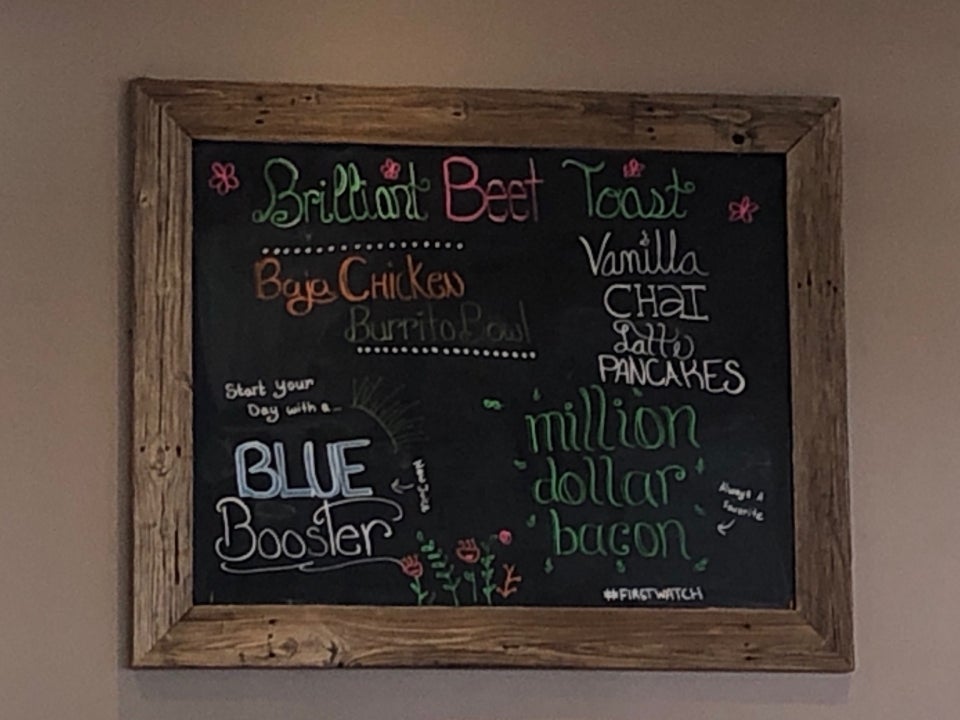 Brilliant Beet Toast
Baja Chicken
Burrito Bowl
Vanilla
CHAI
Latte
PANCAKES
Start your
Day with a...
BLUE
Booster
million
dollar
bacon
Always A
Favorite
#FIRSTWATCH